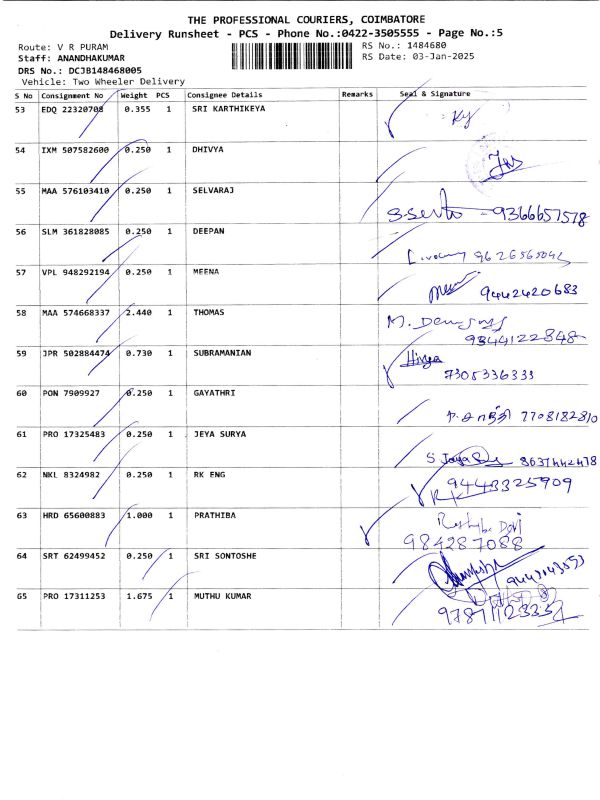 THE PROFESSIONAL COURIERS, COIMBATORE
Delivery Runsheet - PCS - Phone No.:0422-3505555 - Page No.:5
Route: V R PURAM
RS No.: 1484680
Staff: ANANDHAKUMAR
RS Date: 03-Jan-2025
DRS No.: DCJB148468005
Vehicle: Two Wheeler Delivery
S No Consignment No Weight PCS Consignee Details Remarks Seal & Signature
53 EDQ 22320708 0.355 1 SRI KARTHIKEYA
54 IXM 507582600 0.250 1 DHIVYA
55 MAA 576103410 0.250 1 SELVARAJ
9366657578
56 SLM 361828085 0.250 1 DEEPAN
57 VPL 948292194 0.250 1 MEENA
9442420683
58 MAA 574668337 2.440 1 THOMAS
9344122848
59 JPR 502884474 0.730 1 SUBRAMANIAN
7305336333
60 PON 7909927 0.250 1 GAYATHRI
7708182810
61 PRO 17325483 0.250 1 JEYA SURYA
8637442478
62 NKL 8324982 0.250 1 RK ENG
9443325909
63 HRD 65600883 1.000 1 PRATHIBA
Devi
984287088
64 SRT 62499452 0.250 1 SRI SONTOSHE
65 PRO 17311253 1.675 1 MUTHU KUMAR